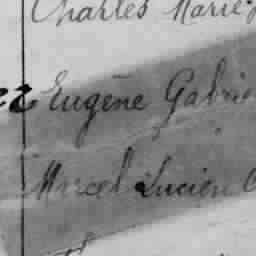 Charles Marie
22 Eugène Gabrie
Marcel Lucien